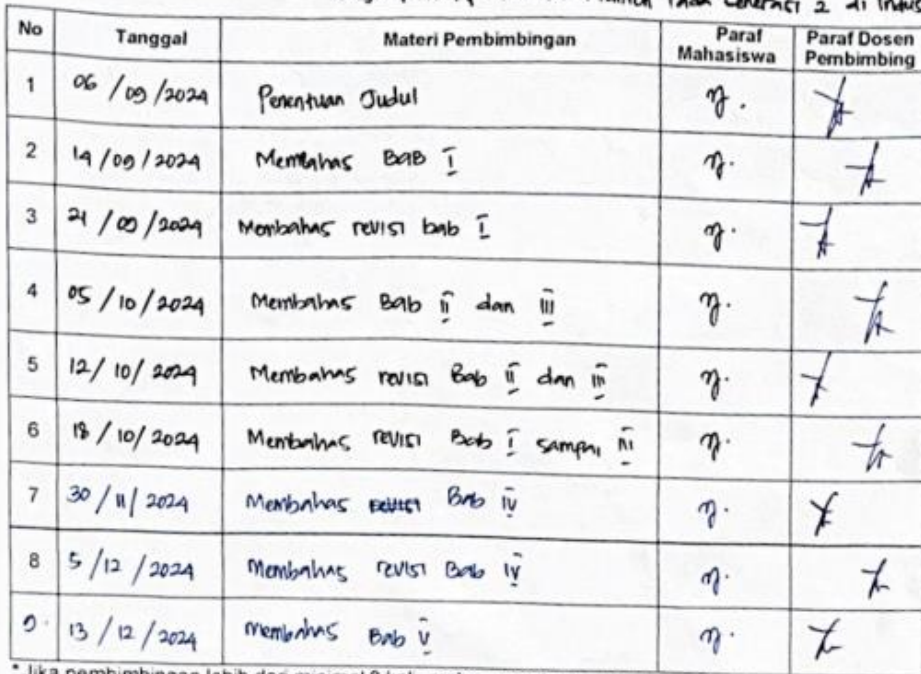 Generasi 2 di Indus
No Tanggal Materi Pembimbingan Paraf Mahasiswa Paraf Dosen Pembimbing
1 06 / 09 / 2024 Penentuan Judul
2 14 / 09 / 2024 Membahas BAB I
3 21 / 09 / 2024 Membahas revisi bab I
4 05 / 10 / 2024 Membahas Bab II dan III
5 12 / 10 / 2024 Membahas revisi Bab II dan III
6 18 / 10 / 2024 Membahas revisi Bab I sampai III
7 30 / 11 / 2024 Membahas Bab IV
8 5 / 12 / 2024 Membahas revisi Bab IV
9. 13 / 12 / 2024 Membahas Bab V
* Jika pembimbingan lebih dari minimal